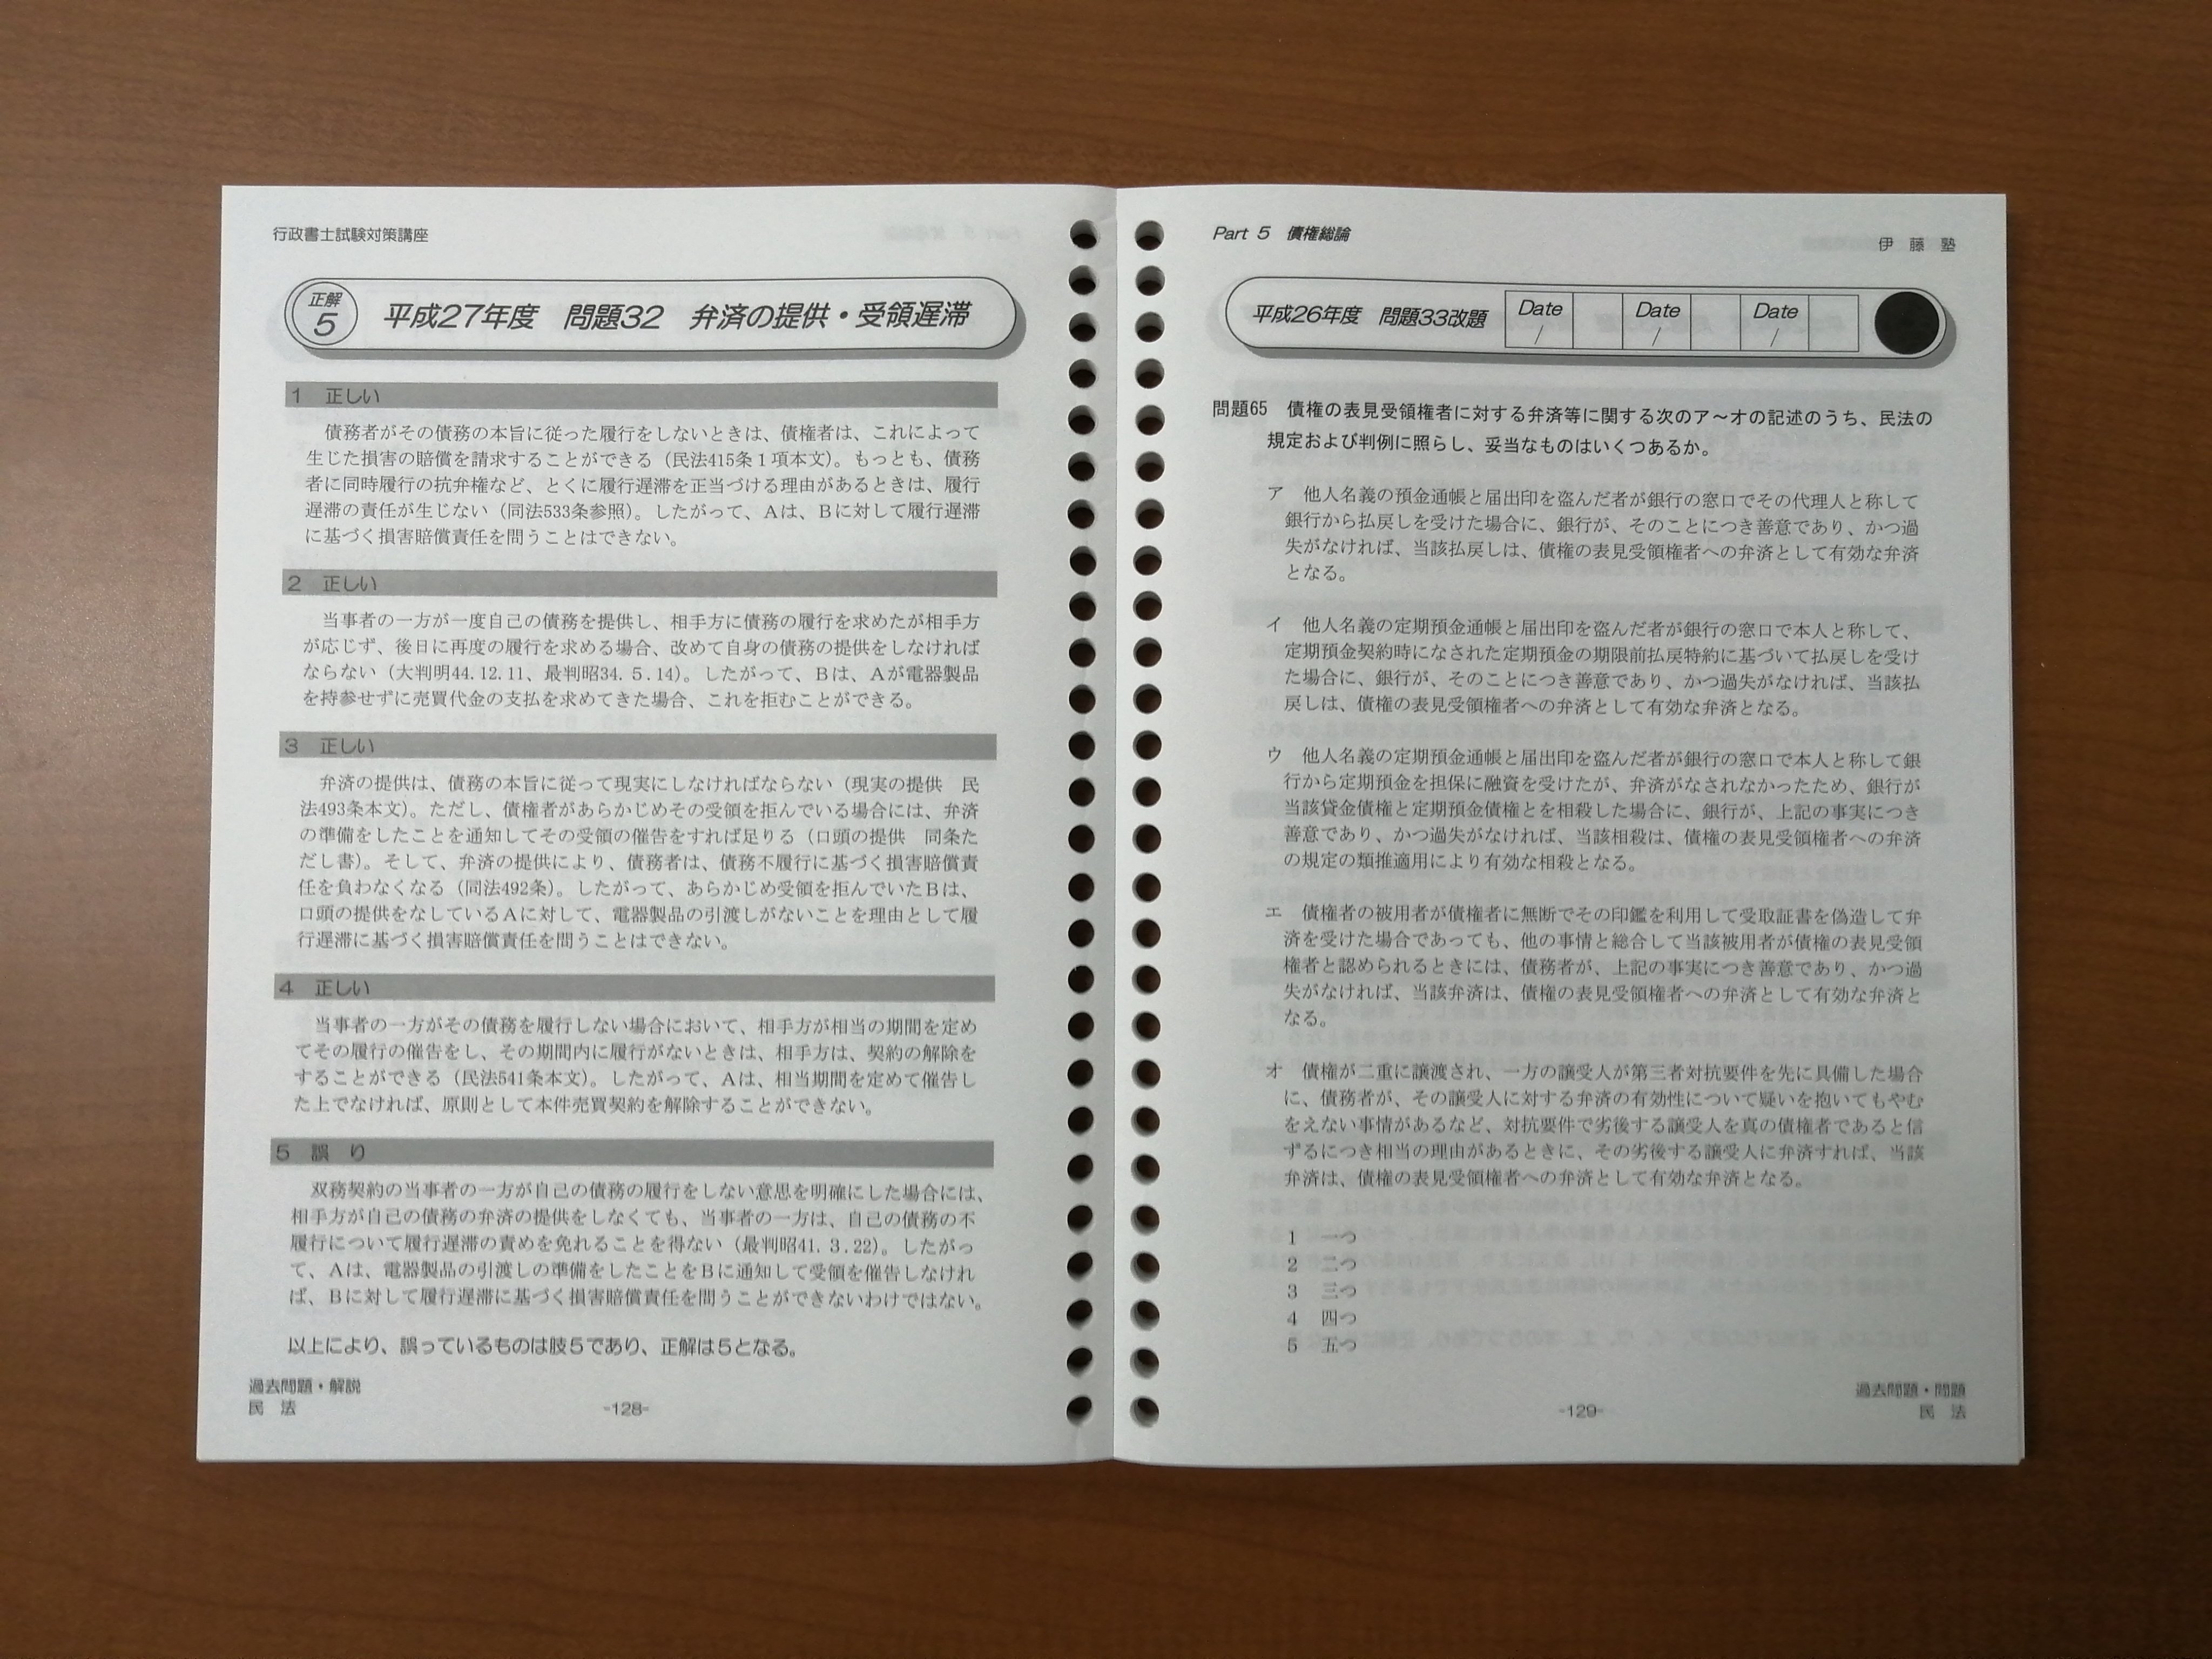 行政書士試験対策講座
正解
5
平成27年度 問題32 弁済の提供・受領遅滞
1 正しい
債務者がその債務の本旨に従った履行をしないときは、債権者は、これによって
生じた損害の賠償を請求することができる（民法415条１項本文）。もっとも、債務
者に同時履行の抗弁権など、とくに履行遅滞を正当づける理由があるときは、履行
遅滞の責任が生じない（同法533条参照）。したがって、Ａは、Ｂに対して履行遅滞
に基づく損害賠償責任を問うことはできない。
2 正しい
当事者の一方が一度自己の債務を提供し、相手方に債務の履行を求めたが相手方
が応じず、後日に再度の履行を求める場合、改めて自身の債務の提供をしなければ
ならない（大判明44.12.11、最判昭34.5.14）。したがって、Ｂは、Ａが電器製品
を持参せずに売買代金の支払を求めてきた場合、これを拒むことができる。
3 正しい
弁済の提供は、債務の本旨に従って現実にしなければならない（現実の提供　民
法493条本文）。ただし、債権者があらかじめその受領を拒んでいる場合には、弁済
の準備をしたことを通知してその受領の催告をすれば足りる（口頭の提供　同条た
だし書）。そして、弁済の提供により、債務者は、債務不履行に基づく損害賠償責
任を負わなくなる（同法492条）。したがって、あらかじめ受領を拒んでいたＢは、
口頭の提供をなしているＡに対して、電器製品の引渡しがないことを理由として履
行遅滞に基づく損害賠償責任を問うことはできない。
4 正しい
当事者の一方がその債務を履行しない場合において、相手方が相当の期間を定め
てその履行の催告をし、その期間内に履行がないときは、相手方は、契約の解除を
することができる（民法541条本文）。したがって、Ａは、相当期間を定めて催告し
た上でなければ、原則として本件売買契約を解除することができない。
5 誤り
双務契約の当事者の一方が自己の債務の履行をしない意思を明確にした場合には、
相手方が自己の債務の弁済の提供をしなくても、当事者の一方は、自己の債務の不
履行について履行遅滞の責めを免れることを得ない（最判昭41.3.22）。したがっ
て、Ａは、電器製品の引渡しの準備をしたことをＢに通知して受領を催告しなけれ
ば、Ｂに対して履行遅滞に基づく損害賠償責任を問うことができないわけではない。
以上により、誤っているものは肢５であり、正解は５となる。
過去問題・解説
民　法
-128-
Part 5　債権総論
伊　藤　塾
平成26年度　問題33改題
Date Date Date
/ / /
問題65　債権の表見受領権者に対する弁済等に関する次のア～オの記述のうち、民法の
規定および判例に照らし、妥当なものはいくつあるか。
ア　他人名義の預金通帳と届出印を盗んだ者が銀行の窓口でその代理人と称して
銀行から払戻しを受けた場合に、銀行が、そのことにつき善意であり、かつ過
失がなければ、当該払戻しは、債権の表見受領権者への弁済として有効な弁済
となる。
イ　他人名義の定期預金通帳と届出印を盗んだ者が銀行の窓口で本人と称して、
定期預金契約時になされた定期預金の期限前払戻特約に基づいて払戻しを受け
た場合に、銀行が、そのことにつき善意であり、かつ過失がなければ、当該払
戻しは、債権の表見受領権者への弁済として有効な弁済となる。
ウ　他人名義の定期預金通帳と届出印を盗んだ者が銀行の窓口で本人と称して銀
行から定期預金を担保に融資を受けたが、弁済がなされなかったため、銀行が
当該貸金債権と定期預金債権とを相殺した場合に、銀行が、上記の事実につき
善意であり、かつ過失がなければ、当該相殺は、債権の表見受領権者への弁済
の規定の類推適用により有効な相殺となる。
エ　債権者の被用者が債権者に無断でその印鑑を利用して受取証書を偽造して弁
済を受けた場合であっても、他の事情と総合して当該被用者が債権の表見受領
権者と認められるときには、債務者が、上記の事実につき善意であり、かつ過
失がなければ、当該弁済は、債権の表見受領権者への弁済として有効な弁済と
なる。
オ　債権が二重に譲渡され、一方の譲受人が第三者対抗要件を先に具備した場合
に、債務者が、その譲受人に対する弁済の有効性について疑いを抱いてもやむ
をえない事情があるなど、対抗要件で劣後する譲受人を真の債権者であると信
ずるにつき相当の理由があるときに、その劣後する譲受人に弁済すれば、当該
弁済は、債権の表見受領権者への弁済として有効な弁済となる。
1　一つ
2　二つ
3　三つ
4　四つ
5　五つ
過去問題・問題
民　法
-129-